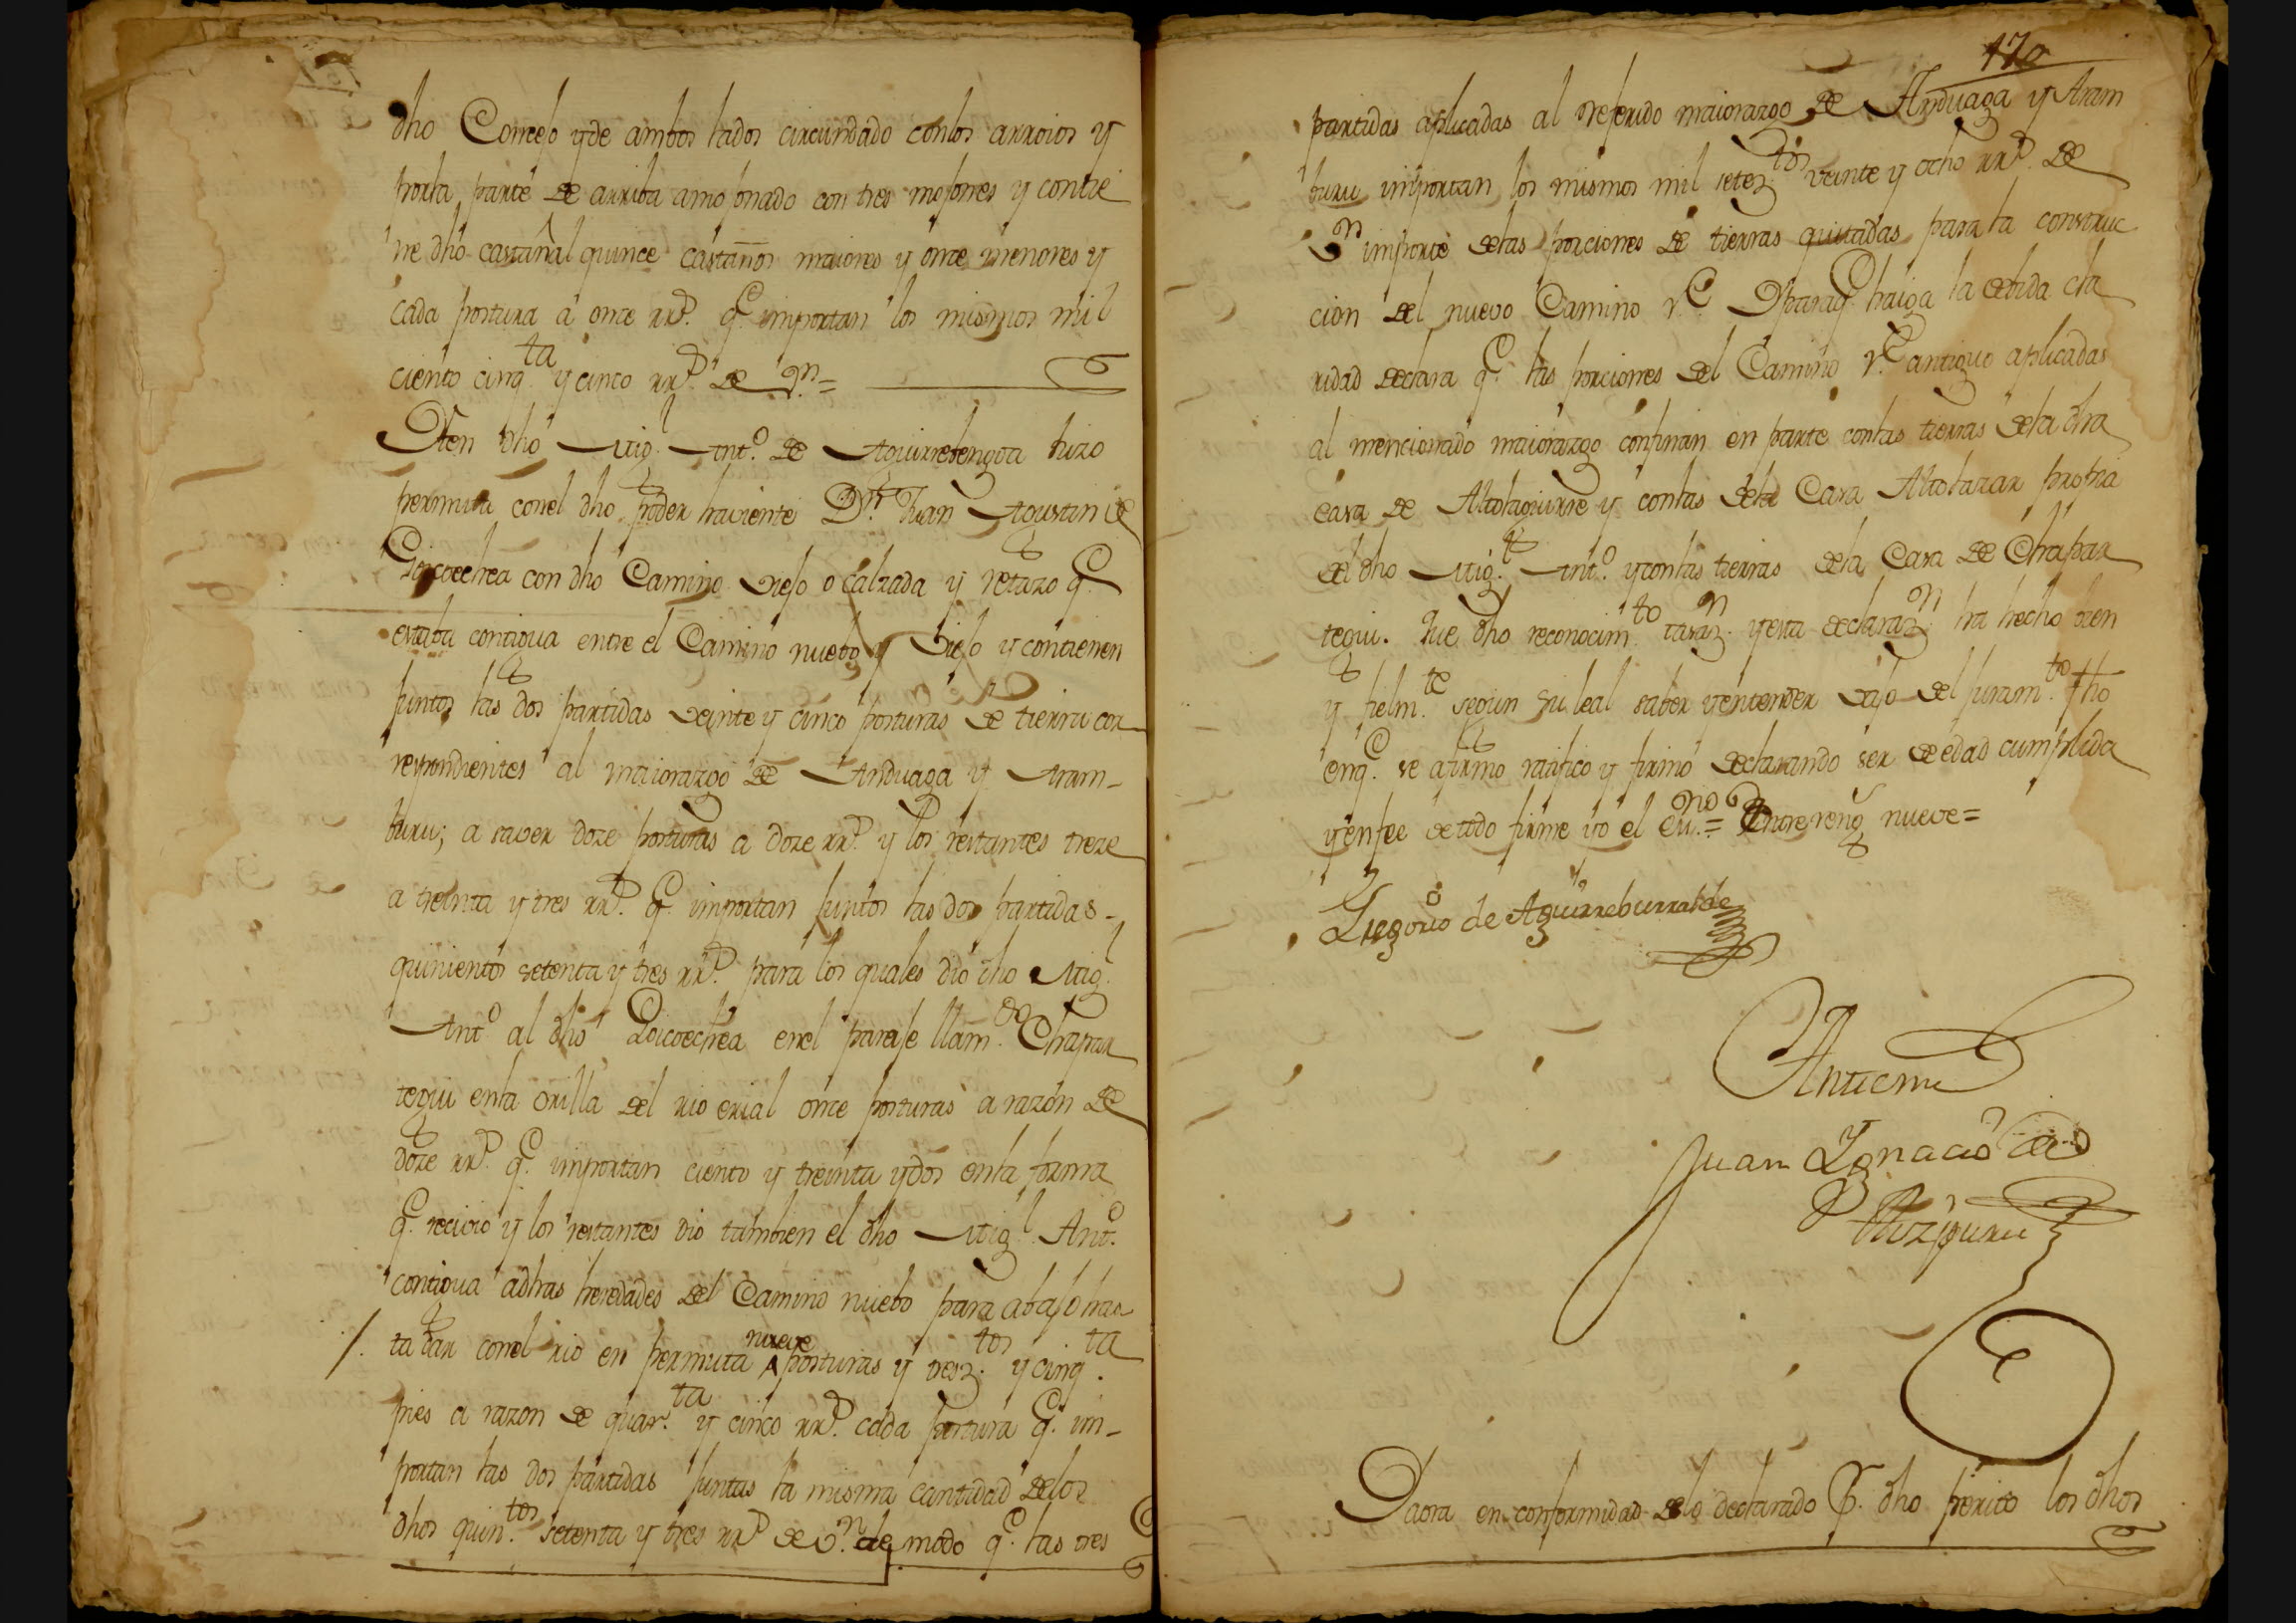 dho Concejo y de ambos lados circundado con los arroios y
por la parte de arriba amojonado con tres mojones y contie
ne dho castañal quince castaños maiores y once menores y
cada postura a once rr.s q.e importan los mismos mil
ciento cinq.ta y cinco rr.s de v.n =
Iten dho Mig.l Ant.o de Aguirrebengoa hizo
permuta con el dho poder haviente D.n Juan Agustin de
Goicoechea con dho Camino viejo o calzada y retazo q.e
estaba contigua entre el Camino nuebo y viejo y contienen
juntos las dos partidas veinte y cinco posturas de tierra cor
respondientes al maiorazgo de Anduaga y Aram-
buru; a saver doze posturas a doze rr.s y los restantes treze
a treinta y tres rr.s q.e importan juntos las dos partidas-
quinientos setenta y tres rr.s para los quales dio dho Mig.l
Ant.o al dho Goicoechea en el paraje llam.do Chapar
tegui en la orilla del rio erial once posturas a razon de
doze rr.s q.e importan ciento y treinta y dos en la forma
q.e recivio y los restantes dio tambien el dho Mig.l Ant.o
contigua a dhas heredades del Camino nuebo para abajo has
/. ta dar con el rio en permuta nueve posturas y tresz.tos y cinq.ta
pies a razon de quar.ta y cinco rr.s cada postura q.e im-
portan las dos partidas juntas la misma cantidad de los
dhos quin.tos setenta y tres rr.s de v.n de modo q.e las tres
170
partidas aplicadas al referido maiorazgo de Anduaga y Aram
buru importan los mismos mil setez.tos veinte y ocho rr.s de
v.n importe de las porciones de tierras quitadas para la construc
cion del nuevo Camino r.l Y para q.e haiga la debida cla
ridad declara q.e las porciones del Camino r.l antiguo aplicadas
al mencionado maiorazgo confinan en parte con las tierras de la dha
casa de Altolaguirre y con las de la Casa Altolazar propia
del dho Mig.l Ant.o y con las tierras de la Casa de Chapar
tegui. Que dho reconocim.to tasaz.n y esta declaraz.n ha hecho bien
y fielm.te segun su leal saber y entender vajo del juram.to fho
en q.e se afirmo ratifico y firmo declarando ser de edad cumplida
y en fee de todo firme yo el Es.no = Entrereng.s nueve =
Gregorio de Aguirreburralde
Ante mi
Juan Ignacio de
Aizpuru
Y aora en conformidad de lo declarado p.r dho perito los dhos